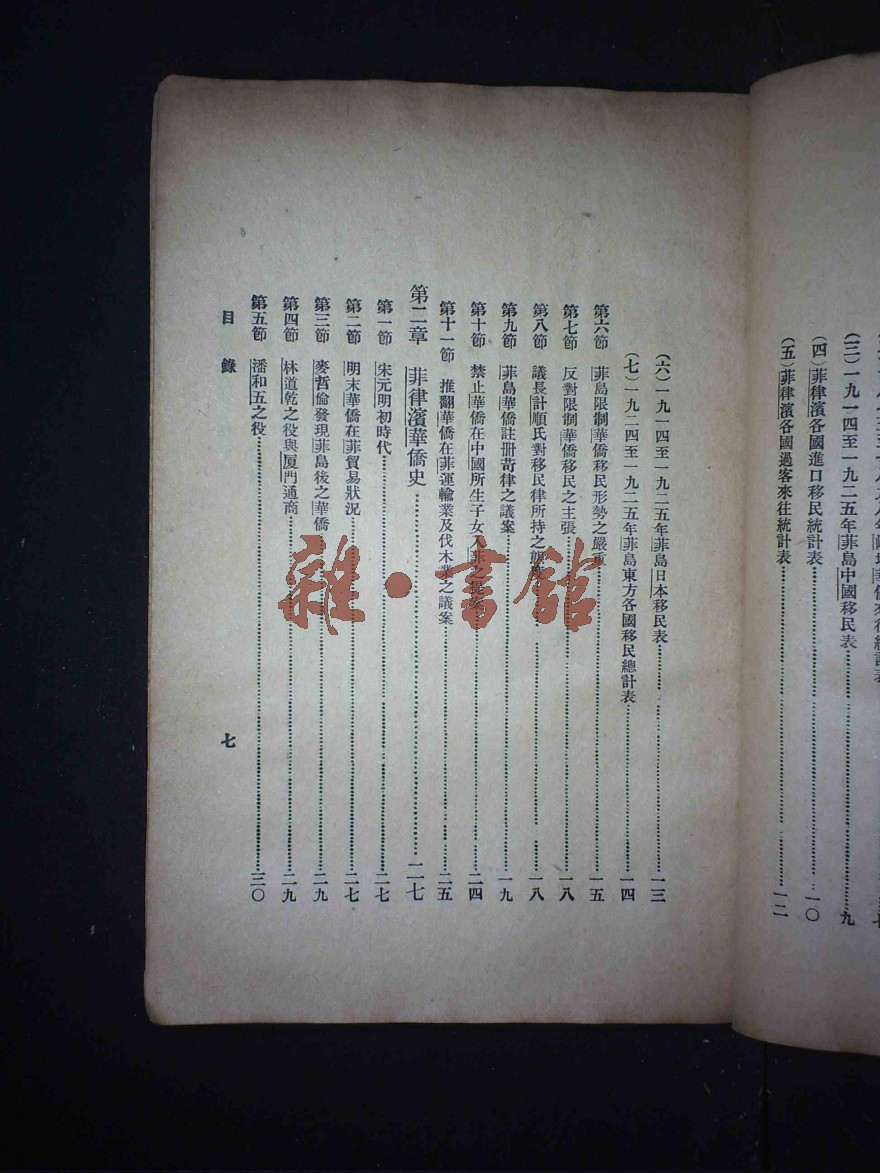 (三)一九一四至一九二五年菲島中國移民表……九
(四)菲律濱各國進口移民統計表……一〇
(五)菲律濱各國過客來往統計表……一二
(六)一九一四至一九二五年菲島日本移民表……一三
(七)一九二四至一九二五年菲島東方各國移民總計表……一四
第六節 菲島限制華僑移民形勢之嚴重……一五
第七節 反對限制華僑移民之主張……一八
第八節 議長計順氏對移民律所持之態度……一八
第九節 菲島華僑註册苛律之議案……一九
第十節 禁止華僑在中國所生子女入菲之提案……二四
第十一節 推翻華僑在菲運輸業及伐木業之議案……二五
第二章 菲律濱華僑史……二七
第一節 宋元明初時代……二七
第二節 明末華僑在菲貿易狀況……二七
第三節 麥哲倫發現菲島後之華僑……二九
第四節 林道乾之役與厦門通商……二九
第五節 潘和五之役……三〇
目錄
七
雜·書館